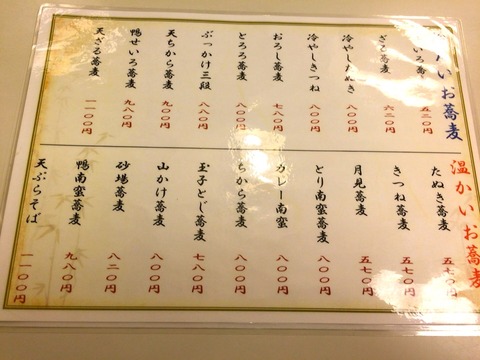 たいお蕎麦
いろ蕎麦 五三〇円
ざる蕎麦 六三〇円
冷やしたぬき 八〇〇円
冷やしきつね 八〇〇円
おろし蕎麦 七八〇円
とろろ蕎麦 八〇〇円
ぶっかけ三段 八八〇円
天ちから蕎麦 九〇〇円
鴨せいろ蕎麦 九八〇円
天ざる蕎麦 一一〇〇円
温かいお蕎麦
たぬき蕎麦 五七〇円
きつね蕎麦 五七〇円
月見蕎麦 五七〇円
とり南蛮蕎麦 八〇〇円
カレー南蛮 八〇〇円
ちから蕎麦 八〇〇円
玉子とじ蕎麦 七八〇円
山かけ蕎麦 八〇〇円
砂場蕎麦 八二〇円
鴨南蛮蕎麦 九八〇円
天ぷらそば 一一〇〇円